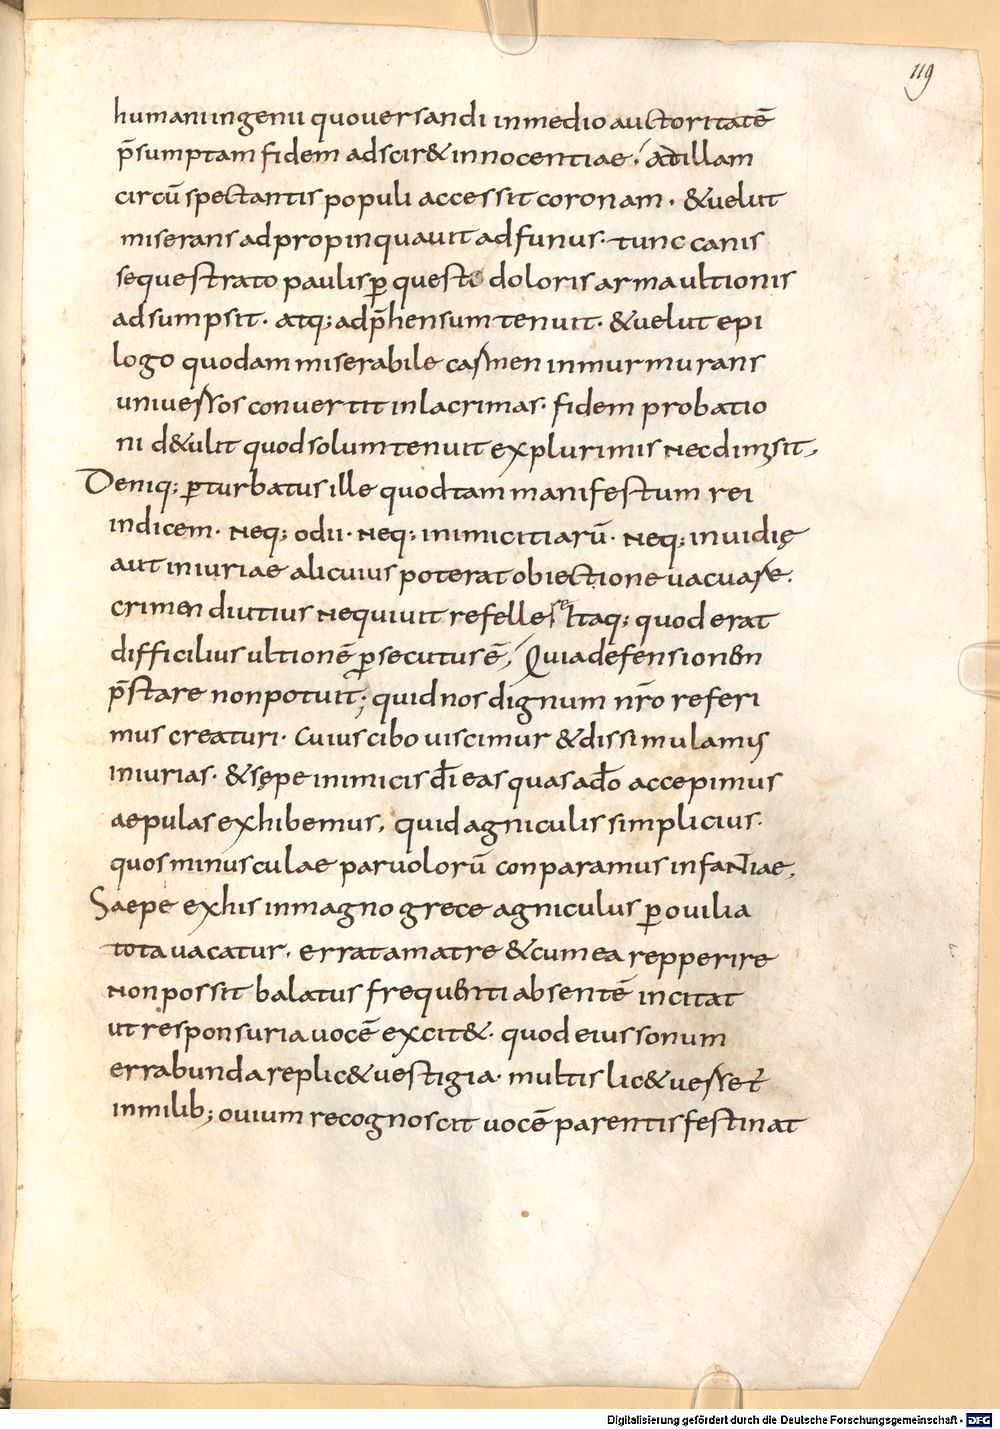 119
humani ingenii quo uersandi in medio auctoritatē
p̄sumptam fidem adscir& innocentiae. Ad illam
circū spectantis populi accessit coronam. &uelut
miserans adpropinquauit ad funus. tunc canis
sequestrato paulisꝑ questi doloris arma ultionis
adsumpsit. atq; adp̄hensum tenuit. &uelut epi
logo quodam miserabile carmen inmurmurans
uniuersos conuertit in lacrimas. fidem probatio
ni d&ulit quod solum tenuit ex plurimis nec dimisit,
Deniq; ꝑturbatus ille quod tam manifestum rei
indicem. neq; odii. neq; inimicitiarū. neq; inuidię
aut iniuriae alicuius poterat obiectione uacuare.
crimen diutius nequiuit refellere Itaq; quod erat
difficilius ultionē ꝑsecutus ē, Quia defensionem
p̄stare non potuit; quid nos dignum nr̄o referi
mus creaturi. Cuius cibo uiscimur &dissimulamus
iniurias. &sępe inimicis d̄i eas quas ad̄o accepimus
aepulas exhibemus, quid agniculis simplicius.
quos minusculae paruolorū conparamus infantiae,
Saepe ex his in magno grece agniculus ꝑ ouilia
tota uacatur. errat a matre &cum ea repperire
non possit balatus frequenti absentē incitat
ut responsuria uocē excit&. quod eius sonum
errabunda replic& uestigia. multis lic& uerset̄
in milib; ouium recognoscit uocē parentis festinat
Digitalisierung gefördert durch die Deutsche Forschungsgemeinschaft - DFG